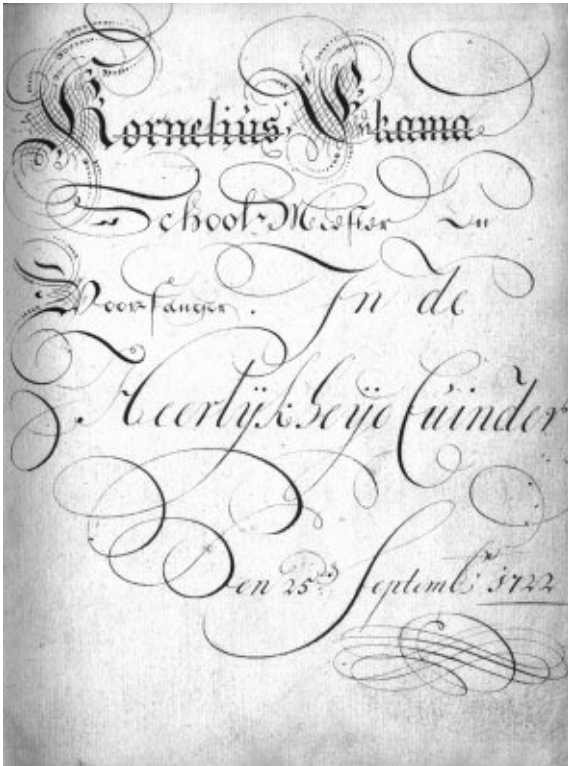 Kornelius
School-Meester En
Voorsanger. In de
Heerlÿkheÿe Cúinder
Den 25 Septembr 1722